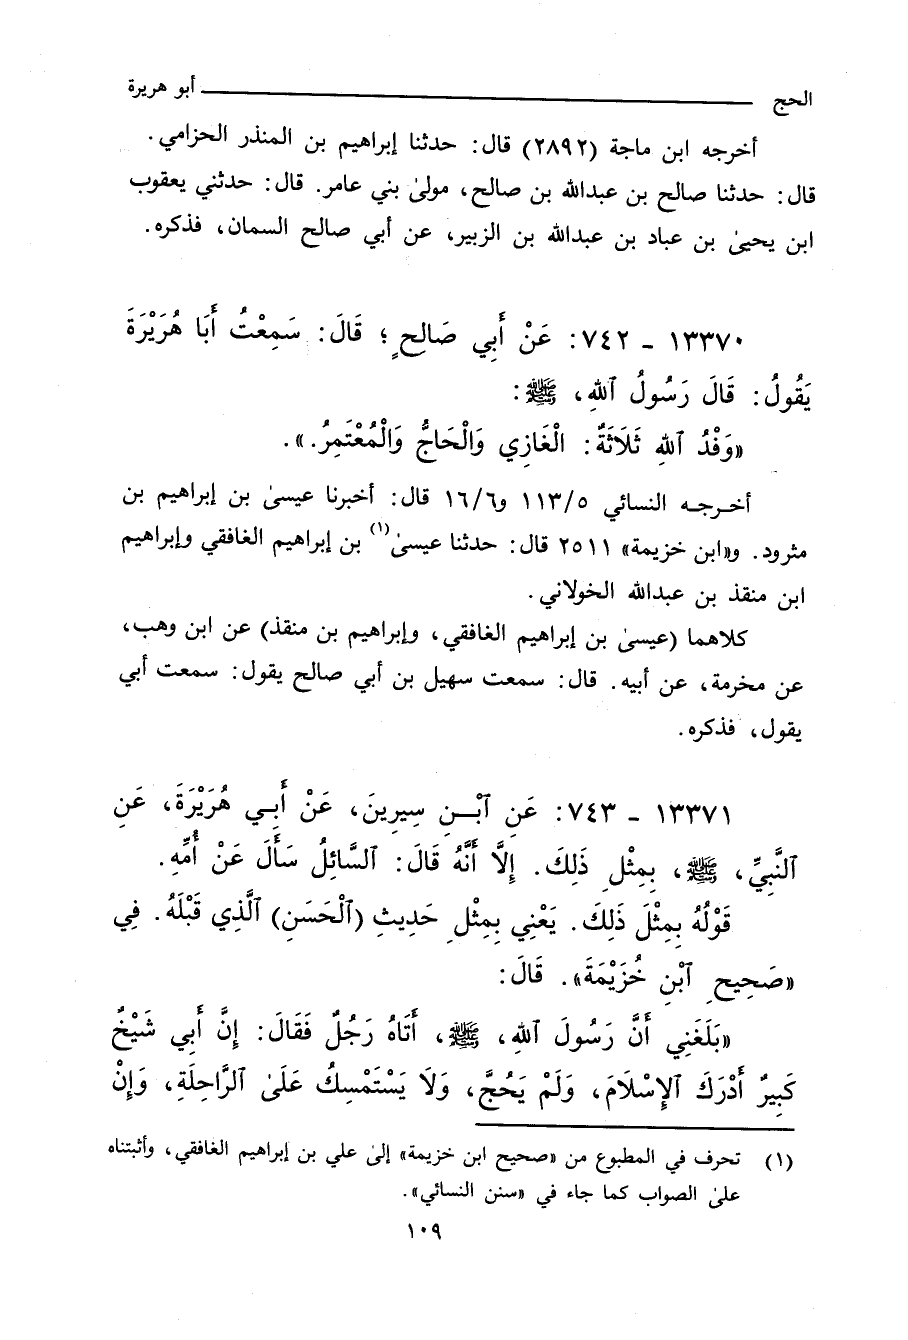 الحج ــــــــــــــــــــ أبو هريرة
أخرجه ابن ماجة (٢٨٩٢) قال: حدثنا إبراهيم بن المنذر الحزامي.
قال: حدثنا صالح بن عبدالله بن صالح، مولىٰ بني عامر. قال: حدثني يعقوب
ابن يحيىٰ بن عباد بن عبدالله بن الزبير، عن أبي صالح السمان، فذكره.
١٣٣٧٠ - ٧٤٢: عَنْ أَبِي صَالِحٍ؛ قَالَ: سَمِعْتُ أَبَا هُرَيْرَةَ
يَقُولُ: قَالَ رَسُولُ ٱللهِ، ﷺ:
«وَفْدُ ٱللهِ ثَلَاثَةٌ: الْغَازِي وَالْحَاجُّ وَالْمُعْتَمِرُ.».
أخرجه النسائي ١١٣/٥ و١٦/٦ قال: أخبرنا عيسىٰ بن إبراهيم بن
مثرود. و«ابن خزيمة» ٢٥١١ قال: حدثنا عيسىٰ(١) بن إبراهيم الغافقي وإبراهيم
ابن منقذ بن عبدالله الخولاني.
كلاهما (عيسىٰ بن إبراهيم الغافقي، وإبراهيم بن منقذ) عن ابن وهب،
عن مخرمة، عن أبيه. قال: سمعت سهيل بن أبي صالح يقول: سمعت أبي
يقول، فذكره.
١٣٣٧١ - ٧٤٣: عَنِ ٱبْنِ سِيرِينَ، عَنْ أَبِي هُرَيْرَةَ، عَنِ
ٱلنَّبِيِّ، ﷺ، بِمِثْلِ ذَلِكَ. إِلَّا أَنَّهُ قَالَ: ٱلسَّائِلُ سَأَلَ عَنْ أُمِّهِ.
قَوْلُهُ بِمِثْلَ ذَلِكَ. يَعْنِي بِمِثْلِ حَدِيثِ (ٱلْحَسَنِ) ٱلَّذِي قَبْلَهُ. فِي
«صَحِيحِ ٱبْنِ خُزَيْمَةَ». قَالَ:
«بَلَغَنِي أَنَّ رَسُولَ ٱللهِ، ﷺ، أَتَاهُ رَجُلٌ فَقَالَ: إِنَّ أَبِي شَيْخٌ
كَبِيرٌ أَدْرَكَ ٱلإِسْلَامَ، وَلَمْ يَحُجَّ، وَلَا يَسْتَمْسِكُ عَلَىٰ ٱلرَّاحِلَةِ، وَإِنْ
(١) تحرف في المطبوع من «صحيح ابن خزيمة» إلىٰ علي بن إبراهيم الغافقي، وأثبتناه
علىٰ الصواب كما جاء في «سنن النسائي».
١٠٩